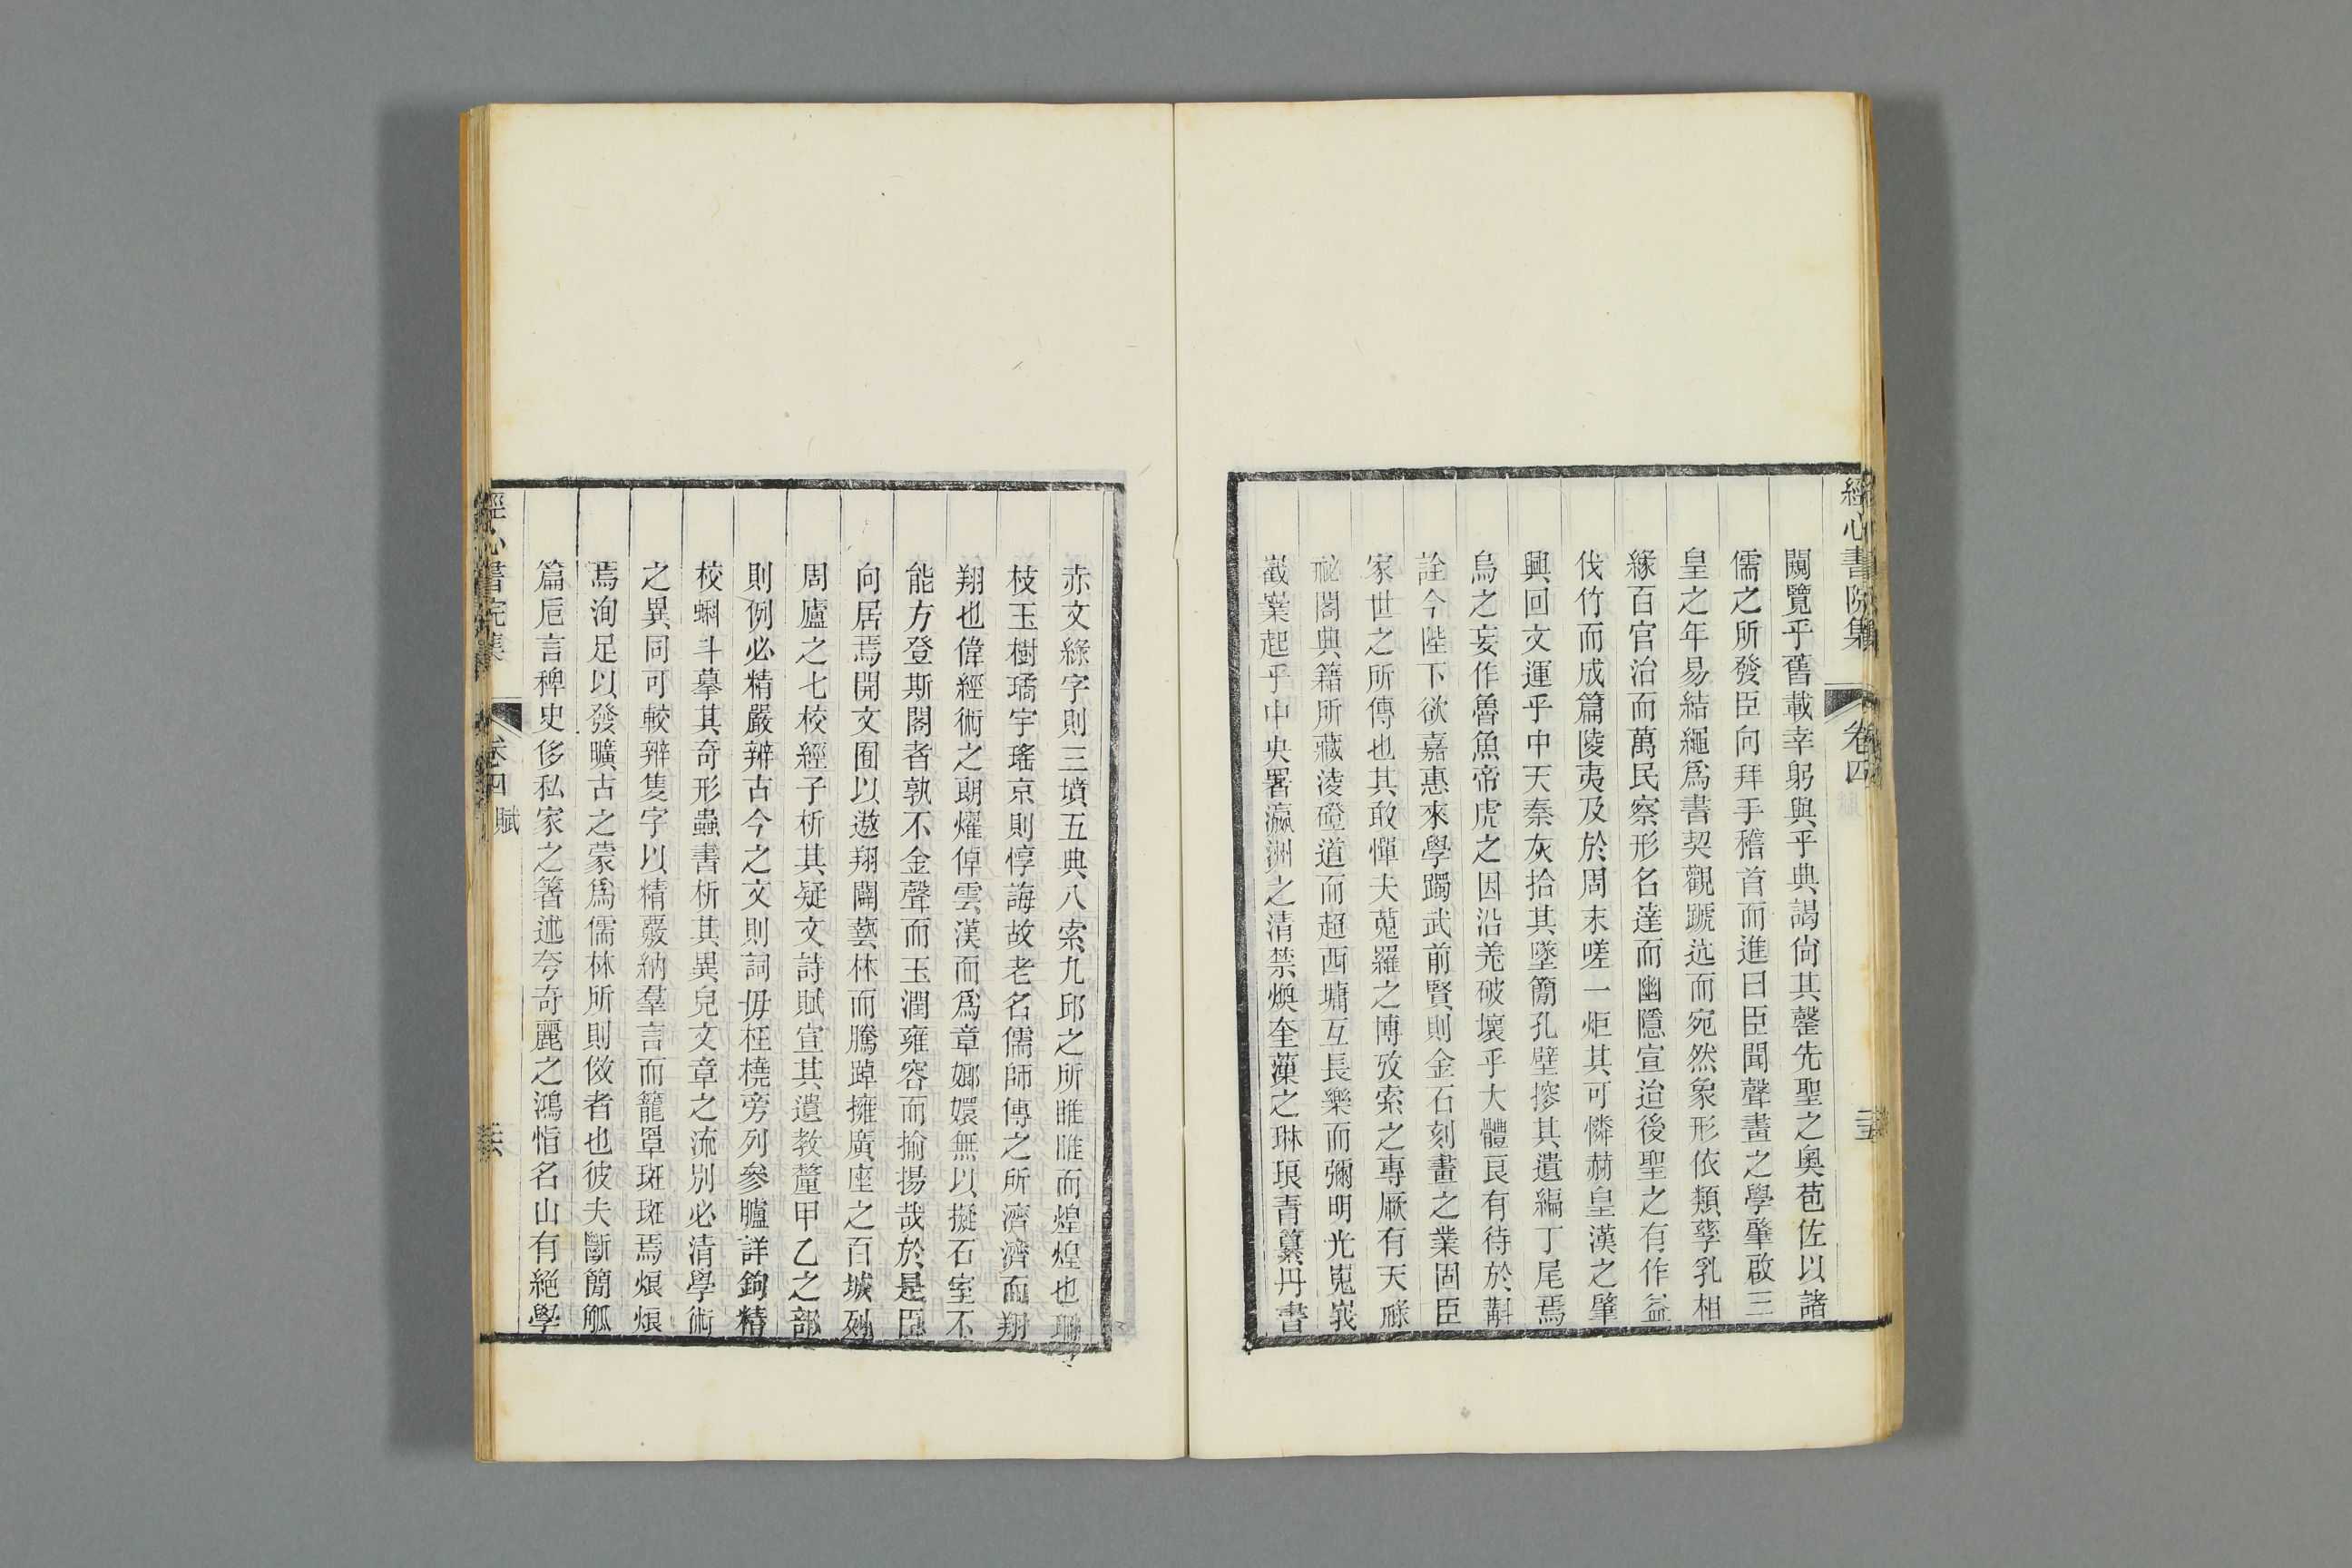 經心書院集
卷四
閱覽乎舊載幸躬與乎典謁尙其罄先聖之奧苞佐以諸
儒之所發臣向拜手稽首而進曰臣聞聲畫之學肇啟三
皇之年易結繩爲書契觀蹏迒而宛然象形依類孳乳相
緣百官治而萬民察形名達而幽隱宣迨後聖之有作益
伐竹而成篇陵夷及於周末嗟一炬其可憐赫皇漢之肇
興回文運乎中天秦灰拾其墜簡孔壁摉其遺編丁尾焉
烏之妄作魯魚帝虎之因沿羌破壞乎大體良有待於斠
詮今陛下欲嘉惠來學躅武前賢則金石刻畫之業固臣
家世之所傳也其敢憚夫蒐羅之博攷索之專厥有天祿
祕閣典籍所藏淩磴道而超西墉互長樂而彌明光嵬峩
嶻嶪起乎中央署瀛洲之清禁煥奎藻之琳琅靑纂丹書
赤文綠字則三墳五典八索九邱之所睢睢而煌煌也珊
枝玉樹璚宇瑤京則惇誨故老名儒師傅之所濟濟而翔
翔也偉經術之朗燿倬雲漢而爲章嫏嬛無以擬石室不
能方登斯閣者孰不金聲而玉潤雍容而揄揚哉於是臣
向居焉開文囿以遨翔闢藝林而騰踔擁廣座之百城列
周廬之七校經子析其疑文詩賦宣其遺教釐甲乙之部
則例必精嚴辨古今之文則詞毋枉橈旁列參臚詳鉤精
校蝌斗摹其奇形蟲書析其異皃文章之流別必清學術
之異同可較辨隻字以精覈納羣言而籠罩斑斑焉烺烺
焉洵足以發曠古之蒙爲儒林所則傚者也彼夫斷簡觚
篇卮言稗史侈私家之箸述夸奇麗之鴻恉名山有絕學
經心書院集
卷四
賦